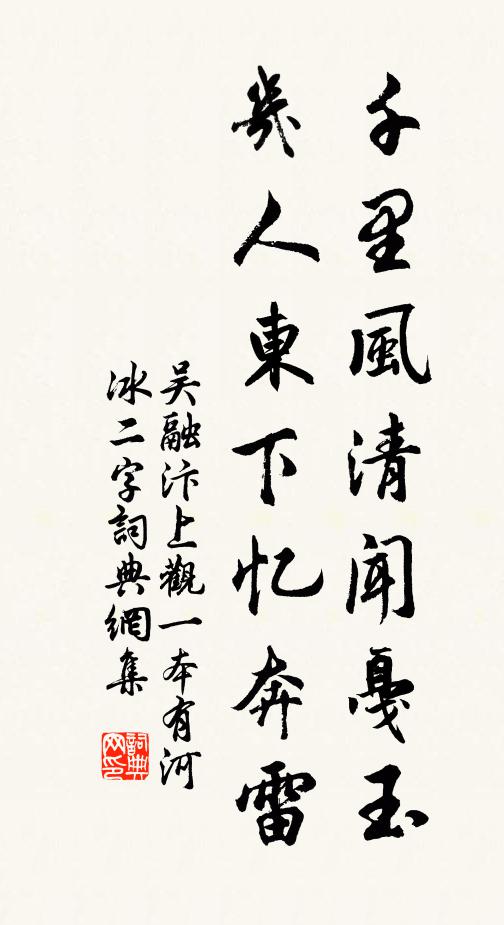 千里風清聞戛玉
幾人東下忆奔雷
吴融汴上觀一本有河
冰二字詞典網集
詞典网印